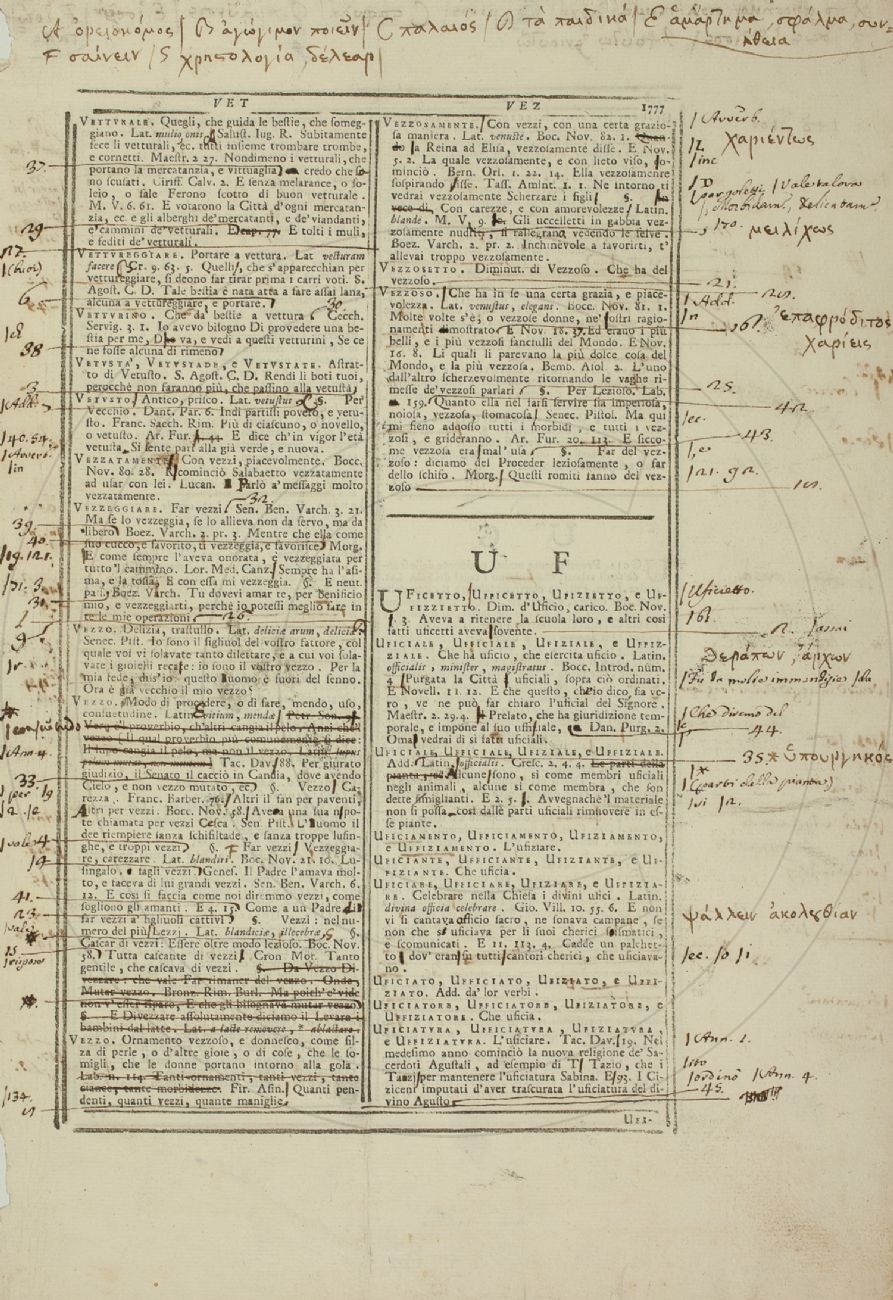 A ὀρειονόμος / B ἀγώγιμον ποιεῖν / C παλαιός / D τὰ παιδικά / E ἁμάρτημα, σφάλμα, συν-
ήθεια
F σαίνειν / S χρηστολογία, δέλεαρ
VET
VETTURALE. Quegli, che guida le bestie, che someg-
giano. Lat. mulio onis. Salust. Iug. R. Subitamente
fece li vetturali, ec. tutti insieme trombare trombe,
e cornetti. Maestr. 2 27. Nondimeno i vetturali, che
portano la mercatanzia, e vittuaglia credo che so-
no scusati. Ciriff. Calv. 2. E senza melarance, o fo-
leio, o sale Ferono scotto di buon vetturale.
M. V. 6. 61. E votarono la Città d'ogni mercatan-
zia, ec. e gli alberghi de'mercatanti, e de'viandanti,
e'cammini de'vetturali. E cap. 77. E tolti i muli,
e fediti de'vetturali.
VETTUREGGIARE. Portare a vettura. Lat vecturam
facere. Cr. 9. 63. 5. Quelli, che s'apparecchian per
vettureggiare, si deono far tirar prima i carri voti. S.
Agost. C. D. Tale bestia è nata atta a fare assai lana,
alcuna a vettureggiare, e portare.
VETTURINO. Che da' bestie a vettura Cecch.
Servig. 3. 1. Io avevo bisogno Di provedere una be-
stia per me, va, e vedi a questi vetturini, Se ce
ne fosse alcuna di rimeno
VETUSTA', VETUSTADE, e VETUSTATE. Astrat-
to di Vetusto. S. Agost. C. D. Rendi li boti tuoi,
perocchè non saranno più, che passino alla vetustà
VETUSTO. Antico, prisco. Lat. vetustus §. Per
Vecchio. Dant. Par. 6. Indi partissi povero, e vetu-
sto. Franc. Sacch. Rim. Più di ciascuno, o novello,
o vetusto. Ar. Fur. E dice ch'in vigor l'età
vetusta Si sente pari alla già verde, e nuova.
VEZZATAMENTE. Con vezzi, piacevolmente. Bocc.
Nov. 80. 28. Ricominciò Salabaetto vezzatamente
ad usar con lei. Lucan. Parlò a'messaggi molto
vezzatamente.
VEZZEGGIARE. Far vezzi Sen. Ben. Varch. 3. 21.
Ma se lo vezzeggia, se lo allieva non da servo, ma da
libero Boez. Varch. 2. pr. 3. Mentre che ella come
suo cucco, e favorito, ti vezzeggia, e favorisce Morg.
E come sempre l'aveva onorata, e vezzeggiata per
tutto'l cammino. Lor. Med. Canz. Sempre ha l'asi-
ma, e la tossa E con essa mi vezzeggia. §. E neut.
pass. Boez. Varch. Tu dovevi amar te, per benificio
mio, e vezzeggiarti, perchè io potessi meglio fare in
te le mie operazioni
VEZZO. Delizia, trastullo. Lat. deliciæ arum, deliciæ
Senec. Pist. Io sono il figliuol del vostro fattore, col
quale voi vi solavate tanto dilettare, e a cui voi sola-
vate i gioielli recare: io sono il vostro vezzo. Per la
mia fede, diss'io: questo uomo è fuori del senno.
Ora è già vecchio il mio vezzo
VEZZO. Modo di procedere, o di fare, mendo, uso,
consuetudine. Latin. vitium, menda
Tac. Dav. 88. Per giurato
giudizio, il Senato il cacciò in Candia, dove avendo
Cielo, e non vezzo mutato, ec. §. Vezzo Ca-
rezza. Franc. Barber. 76. Altri il fan per paventi,
Altri per vezzi. Bocc. Nov. 58. Avea una sua nipo-
te chiamata per vezzi Cesca. Sen. Pist. L'uomo il
dee riempiere sanza schifiltade, e sanza troppe lusin-
ghe, e troppi vezzi §. Far vezzi Vezzeggia-
re, carezzare. Lat. blandiri. Boc. Nov. 21. 10. Lu-
singalo, e fagli vezzi. Genes. Il Padre l'amava mol-
to, e faceva di lui grandi vezzi. Sen. Ben. Varch. 6.
12. E così si faccia come noi diremmo vezzi, come
sogliono gli amanti. E 4. 15. Come a un Padre
far vezzi a' figliuoli cattivi §. Vezzi: nel nu-
mero del più Lezzi. Lat. blanditiæ, illecebræ, §.
Cascar di vezzi: Essere oltre modo lezioso. Boc. Nov.
58. Tutta cascante di vezzi Cron Mor. Tanto
gentile, che cascava di vezzi. §. Da Vezzo Di-
vezzare: che vale Far rimaner del vezzo. Onde,
Mutar vezzo. Bronz. Rim. Burl. Ma poich' e' vide
non v'esser riparo, E che gli bisognava mutar vezzo
§. E Divezzare assolutamente diciamo il Levare i
bambini dal latte. Lat. a lacte removere, * ablactare.
VEZZO. Ornamento vezzoso, e donnesco, come fil-
za di perle, o d'altre gioie, o di cose, che le so-
migli, che le donne portano intorno alla gola.
Lab. n. 114. Tanti ornamenti, tanti vezzi, tanto
ciance, tante morbidezze. Fir. Asin. Quanti pen-
denti, quanti vezzi, quante maniglie
VEZ
1777
VEZZOSAMENTE. Con vezzi, con una certa grazio-
sa maniera. Lat. venustè. Boc. Nov. 82. 1. Quan-
do la Reina ad Elisa, vezzosamente disse. E Nov.
5. 2. La quale vezzosamente, e con lieto viso, co-
minciò. Bern. Orl. 1. 22. 14. Ella vezzosamente
sospirando disse. Tass. Amint. 1. 1. Ne intorno ti
vedrai vezzosamente Scherzare i figli §.
Con carezze, e con amorevolezze. Latin.
blandè. M. V. 9. Gli uccelletti in gabbia vez-
zosamente nudriti, si rallegrano vedendo le selve.
Boez. Varch. 2. pr. 2. Inchinevole a favorirti, t'
allevai troppo vezzosamente.
VEZZOSETTO. Diminut. di Vezzoso. Che ha del
vezzoso.
VEZZOSO. Che ha in se una certa grazia, e piace-
volezza. Lat. venustus, elegans. Bocc. Nov. 81. 1.
Molte volte s'è, o vezzose donne, ne' nostri ragio-
namenti dimostrato E Nov. 18. 37. Ed erano i più
belli, e i più vezzosi fanciulli del Mondo. E Nov.
16. 8. Li quali li parevano la più dolce cosa del
Mondo, e la più vezzosa. Bemb. Asol. 2. L'uno
dall'altro scherzevolmente ritornando le vaghe ri-
messe de'vezzosi parlari §. Per Lezioso. Lab.
n. 159. Quanto ella nel farsi servire sia imperiosa,
noiosa, vezzosa, stomacosa Senec. Pistol. Ma qui
mi fieno addosso tutti i morbidi, e tutti i vez-
zosi, e grideranno. Ar. Fur. 20. 113. E sicco-
me vezzosa era mal'usa §. Far del vez-
zoso: diciamo del Proceder leziosamente, o far
dello schifo. Morg. Questi romiti fanno del vez-
zoso
U F
UFICETTO, UFFICETTO, UFIZIETTO, e UF-
FIZZIETTO. Dim. d'Uficio, carico. Boc. Nov.
3. Aveva a ritenere la scuola loro, e altri cosi
fatti uficetti aveva sovente.
UFICIALE, UFFICIALE, UFIZIALE, e UFFIZ-
ZIALE. Che hà uficio, che esercita uficio. Latin.
officialis, minister, magistratus. Bocc. Introd. num.
4 Purgata la Città uficiali, sopra ciò ordinati.
E Novell. 11. 12. E che questo, ch'io dico, sia ve-
ro, ve ne può far chiaro l'uficial del Signore.
Maestr. 2. 29.4. Prelato, che ha giuridizione tem-
porale, e impone al suo ufiziale, Dan. Purg. 2.
Omai vedrai di si fatti uficiali.
UFICIALE, UFFICIALE, UFIZIALE, e UFFIZIALE.
Add. Latin. officialis. Cresc. 2. 4. 4. Le parti della
pianta, Alcune sono, sì come membri uficiali
negli animali, alcune sì come membra, che son
dette simiglianti. E 2. 5. Avvegnachè'l materiale
non si possa così dalle parti uficiali rimuovere in es-
se piante.
UFICIAMENTO, UFFICIAMENTO, UFIZIAMENTO,
e UFFIZIAMENTO. L'ufiziare.
UFICIANTE, UFFICIANTE, UFIZIANTE, e UF-
FIZIANTE. Che uficia.
UFICIARE, UFFICIARE, UFIZIARE, e UFFIZIA-
RE. Celebrare nella Chiesa i divini ufici. Latin.
divina officia celebrare. Gio. Vill. 10. 55. 6. E non
vi si cantava officio sacro, ne sonava campane, se
non che s' uficiava per li suoi cherici scismatici,
e scomunicati. E 11. 113. 4. Cadde un palchet-
to dov' eran su tutti cantori cherici, che uficiava-
no.
UFICIATO, UFFICIATO, UFIZIATO, e UFFI-
ZIATO. Add. da' lor verbi.
UFICIATORE, UFFICIATORE, UFIZIATORE, e
UFFIZIATORE. Che uficia.
UFICIATURA, UFFICIATURA, UFIZIATURA,
e UFFIZIATURA. L'uficiare. Tac. Dav. 19. Nel
medesimo anno cominciò la nuova religione de' Sa-
cerdoti Agustali, ad esempio di T. Tazio, che i
Tazi per mantenere l'uficiatura Sabina. E 93. I Ci-
ziceni imputati d'aver trascurata l'uficiatura del di-
vino Agusto
UFI-
37.
29
6
38
3
/ Add.
/ 40. 54.
/ Avverb.
/ in
30.
32.
39.
40
/ 19. 121.
26.
/ Ann. 4.
33
41.
23
15
/ 134.
/ Avverb.
χαριέντως
/ inc
μειλίχως
21.
/ Add.
ἐπαφρόδιτος
χαρίεις
25.
42
/ ec.
43.
/ 21. 92.
/ Uficietto.
θεράπων, ἄρχων
/ Che diremo del
44.
35 * ὑπουργικός
/ (parti della pianta)
ψάλλειν ἀκολουθίαν
/ Ann. 1.
/ ordinò / Ann. 4.
45.